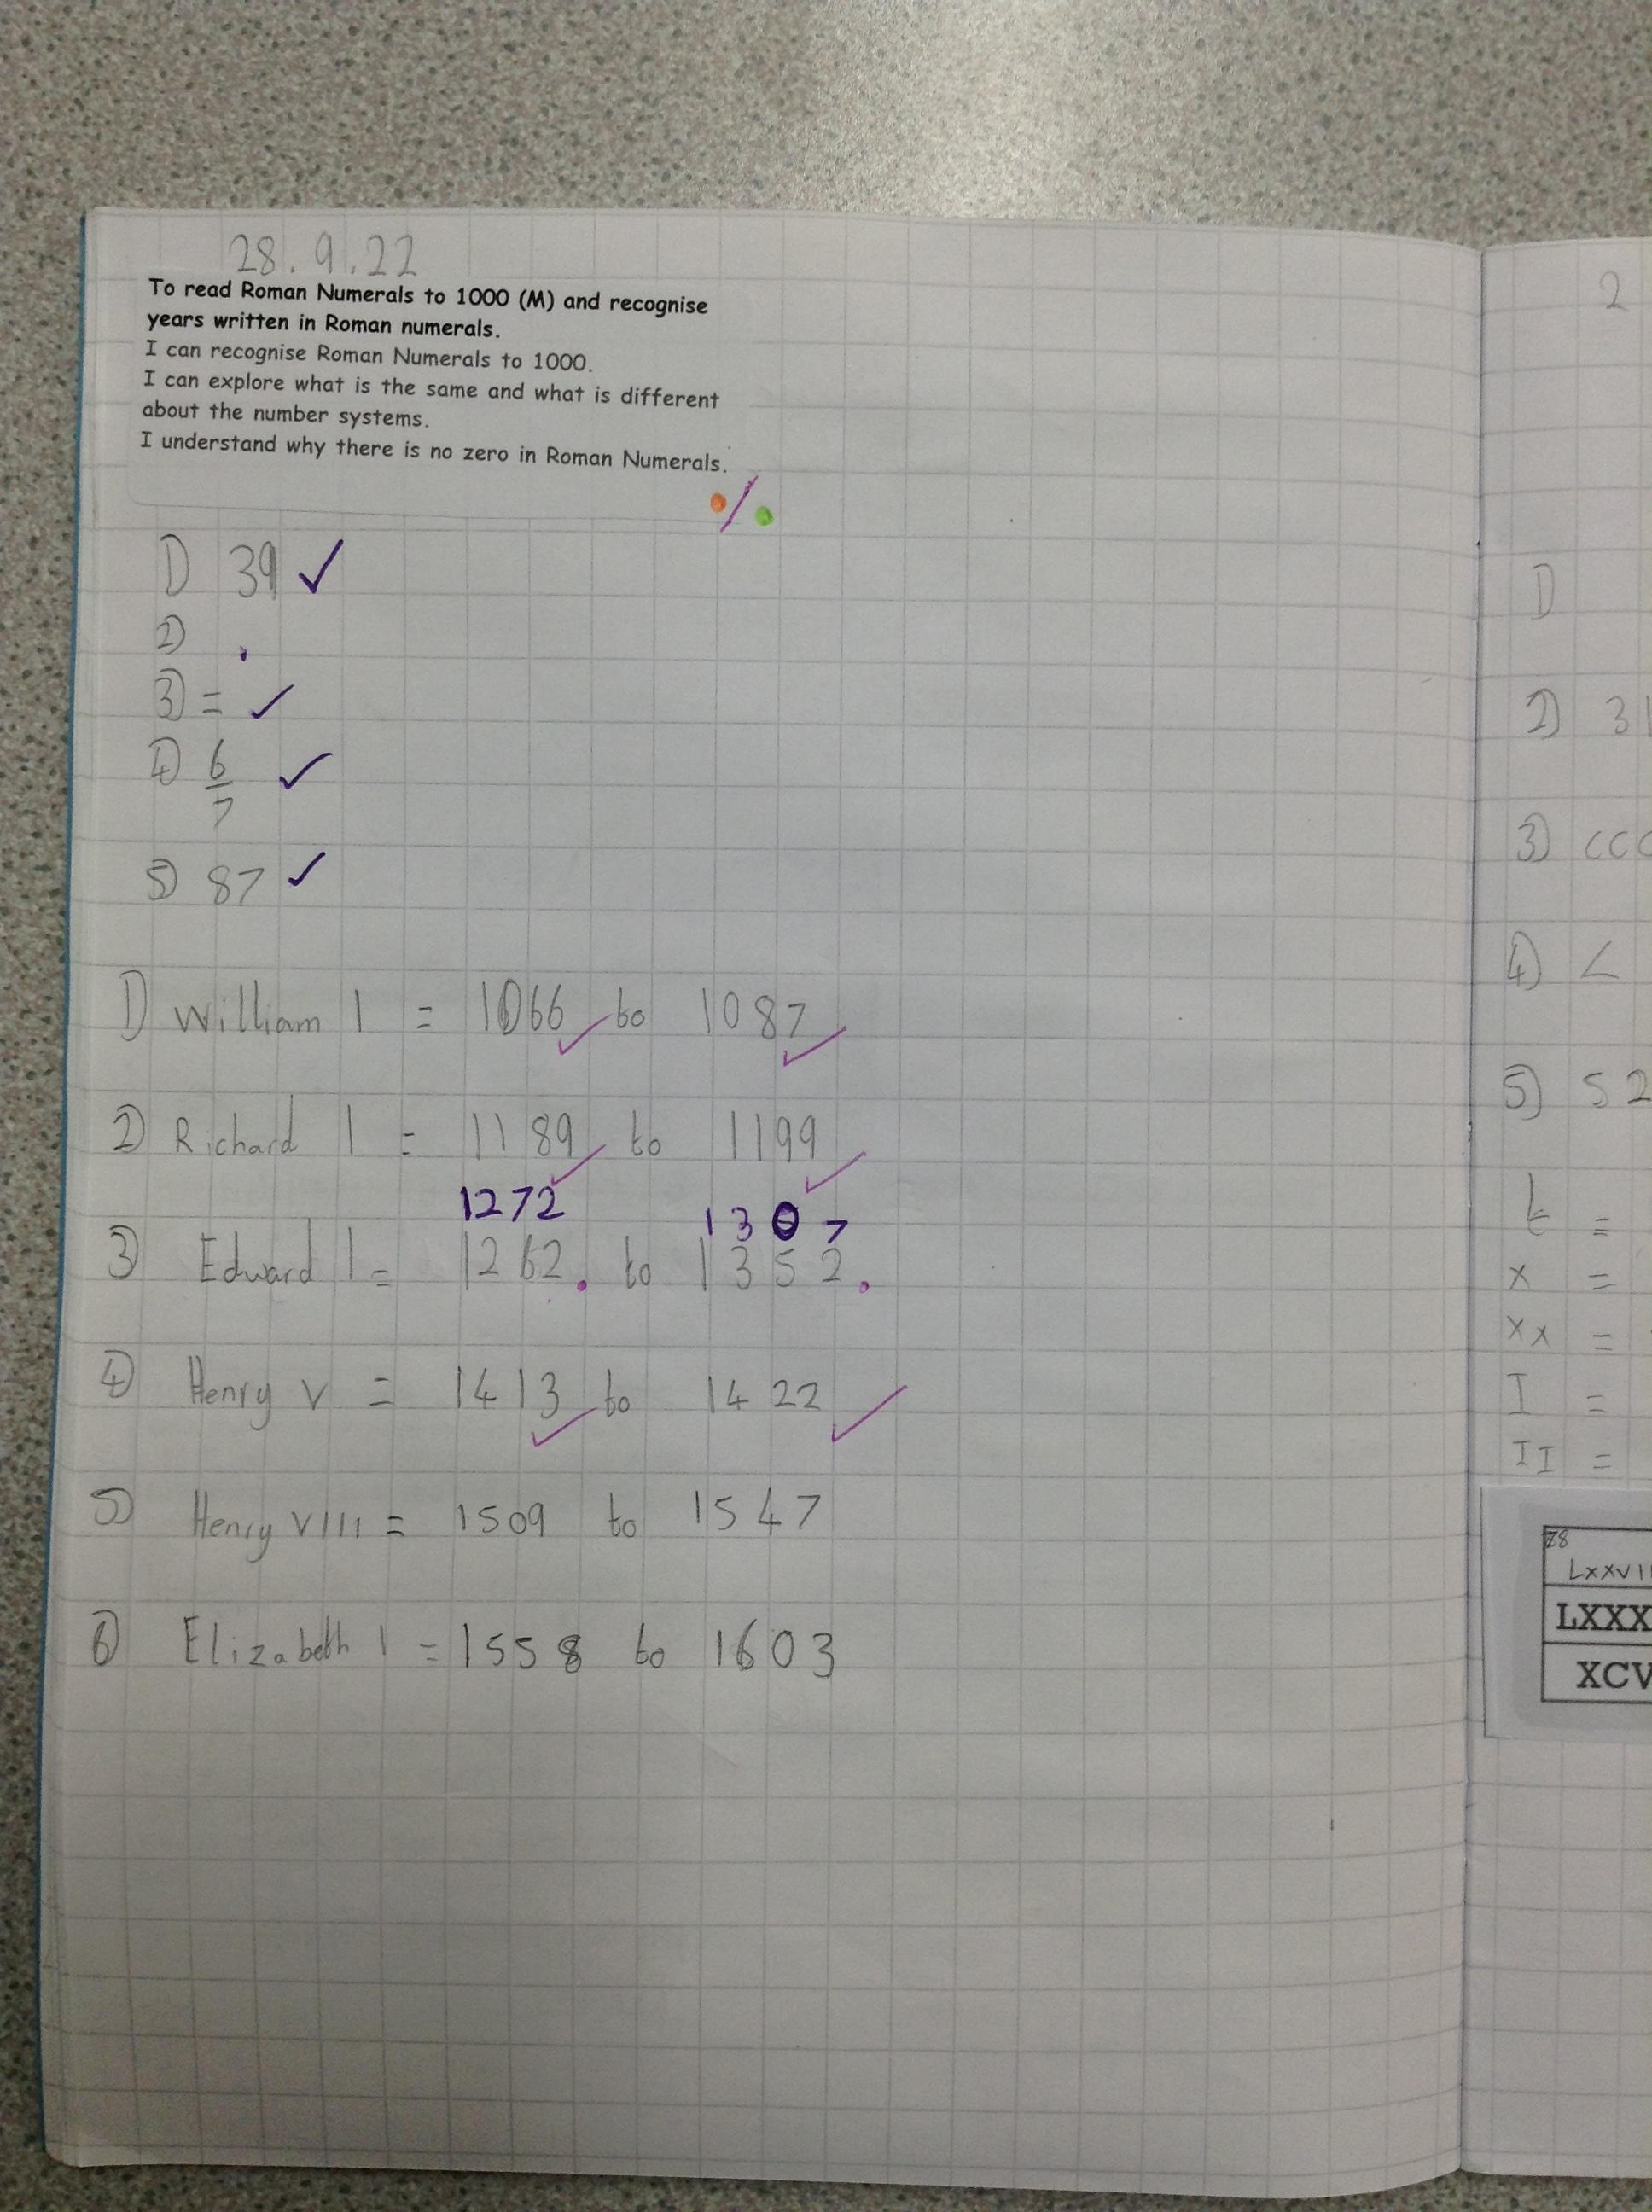 28.9.22
To read Roman Numerals to 1000 (M) and recognise
years written in Roman numerals.
I can recognise Roman Numerals to 1000.
I can explore what is the same and what is different
about the number systems.
I understand why there is no zero in Roman Numerals.
1) 39
2)
3) =
4) 6
7
5) 87
1) William I = 1066 to 1087
2) Richard I = 1189 to 1199
1272 1307
3) Edward I = 1262. to 1352.
4) Henry V = 1413 to 1422
5) Henry VIII = 1509 to 1547
6) Elizabeth I = 1558 to 1603
2
1)
2) 31
3) CCC
4) <
5) 52
L =
X =
XX =
I =
II =
78
LXXVII
LXXX
XCV